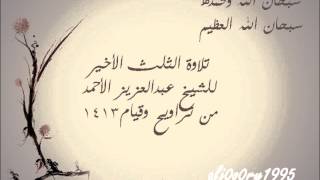 سبحان الله وبحمده
سبحان الله العظيم
تلاوة الثلث الأخير
للشيخ عبدالعزيز الأحمد
من تراويح وقيام ١٤١٣